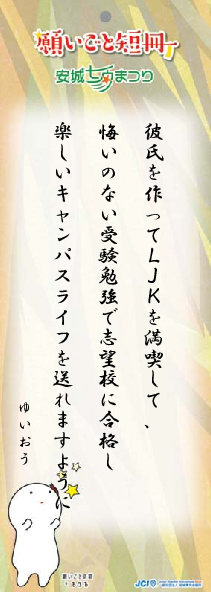 願いごと短冊
安城七夕まつり
彼氏を作ってLJKを満喫して、
悔いのない受験勉強で志望校に合格し
楽しいキャンパスライフを送れますように
ゆいおう
願いごと短冊
JCI